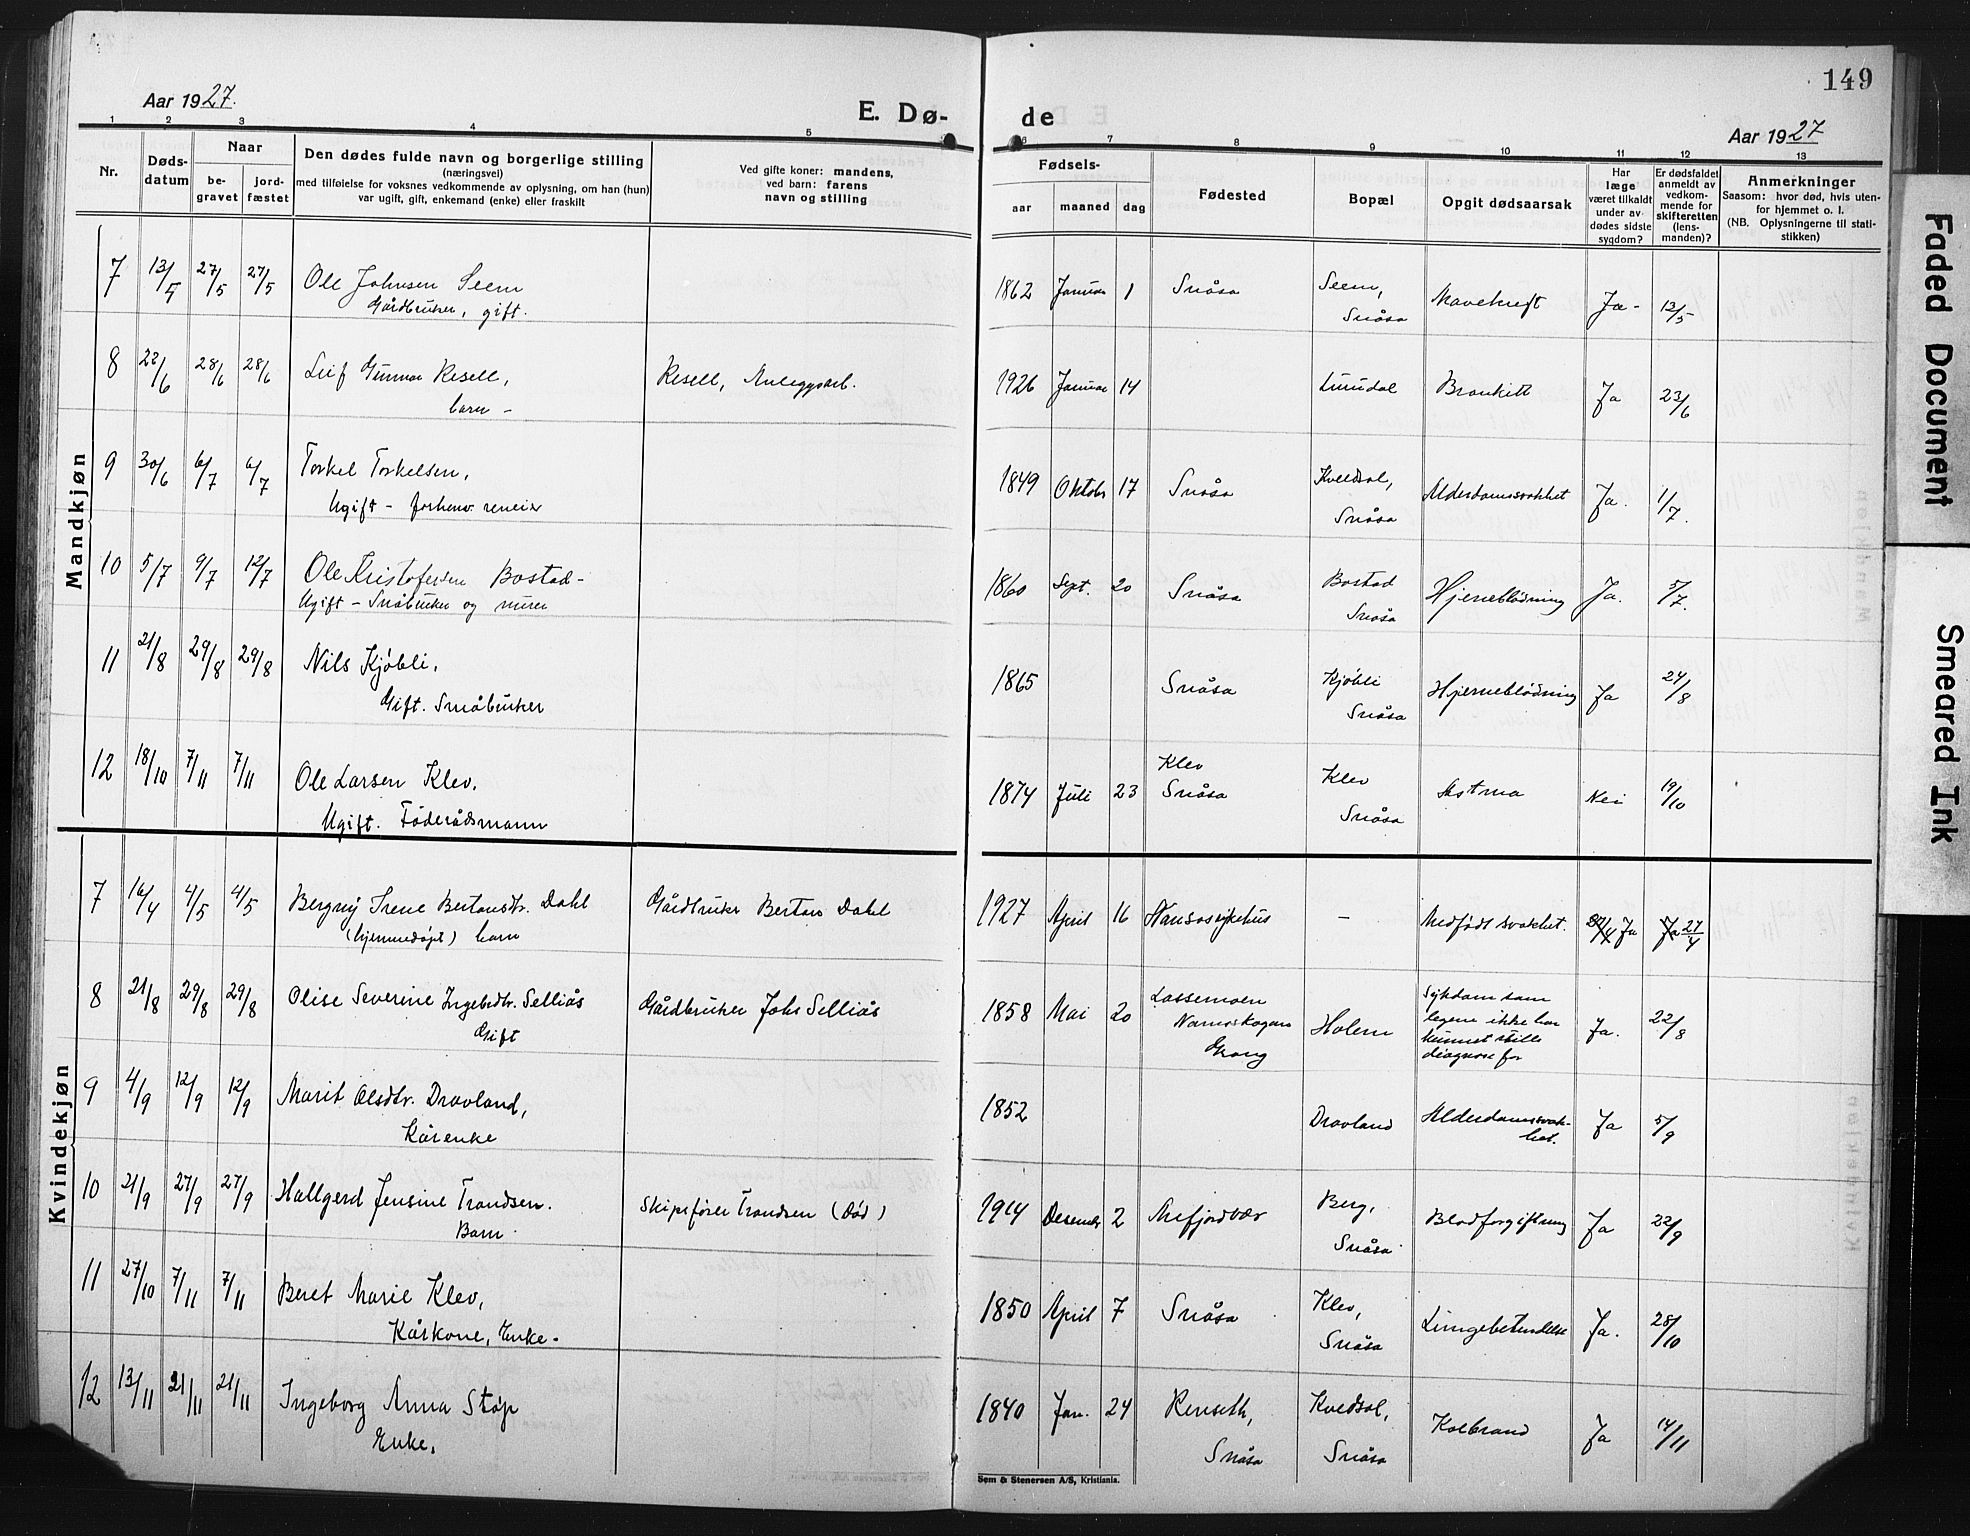 149
Aar 1927.
E. Dø-
de
Aar 1927
1 2 3 4 5 6 7 8 9 10 11 12 13
Nr.
Døds-
datum
Naar
be-
gravet
jord-
fæstet
Den dødes fulde navn og borgerlige stilling
(næringsvei)
med tilføielse for voksnes vedkommende av oplysning, om han (hun)
var ugift, gift, enkemand (enke) eller fraskilt
Ved gifte koner: mandens,
ved barn: farens
navn og stilling
Fødsels-
aar maaned dag
Fødested
Bopæl
Opgit dødsaarsak
Har
læge
været tilkaldt
under av-
dødes sidste
sygdom?
Er dødsfaldet
anmeldt av
vedkom-
mende for
skifteretten
(lens-
manden)?
Anmerkninger
Saasom: hvor død, hvis uten-
for hjemmet o. l.
(NB. Oplysningerne til stati-
stikken)
Mandkjøn
7 13/5 27/5 27/5 Ole Johnsen Seem 1862 Januar 1 Snåsa Seem, Mavekreft Ja - 13/5
Gårdbruker, gift. Snåsa
8 22/6 28/6 28/6 Leif Gunnar Resell, Resell, Anleggsarb. 1926 Januar 14 Lurudal Bronkitt Ja 23/6
barn -
9 30/6 6/7 6/7 Torkel Torkelsen, 1849 Oktober 17 Snåsa Kvedsal, Alderdomssvakhet Ja. 1/7.
Ugift - forhenv. reneier Snåsa
10 5/7 9/7 12/7 Ole Kristofersen Bostad - 1860 Sept. 20 Snåsa Bostad Hjerneblødning Ja. 5/7.
Ugift - Småbruker og murer Snåsa
11 21/8 29/8 29/8 Nils Kjøbli, 1865 Snåsa Kjøbli Hjerneblødning Ja 24/8
Gift. Småbruker Snåsa
12 18/10 7/11 7/11 Ole Larsen Klev, 1874 Juli 23 Klev Klev Astma Nei 19/10
Ugift. Føderådsmann Snåsa Snåsa
Kvindekjøn
7 16/4 4/5 4/5 Bergny Irene Bertonsdtr. Dahl Gårdbruker Berton Dahl 1927 April 16 Namsos sykehus - Medfødt svakhet. Ja 27/4
(hjemmedøpt) barn
8 21/8 29/8 29/8 Olise Severine Ingebrdtr. Selliås Gårdbruker Johs Selliås 1858 Mai 20 Lassemoen Holem Sykdom som Ja. 22/8
Gift Namsskogan legene ikke har
Grong kunnet stille
diagnose for
9 4/9 12/9 12/9 Marit Olsdtr. Dravland, 1852 Dravland Alderdomssvak- Ja 5/9
Kårenke het.
10 21/9 27/9 27/9 Hallgerd Jensine Trondsen. Skipsfører Trondsen (Død) 1914 Desember 2 Mefjordvær Berg, Blodforgiftning Ja 22/9
Barn. Snåsa
11 27/10 7/11 7/11 Beret Marie Klev, 1850 April 7 Snåsa Klev, Lungebetendelse Ja. 28/10
Kårkone, Enke - Snåsa
12 13/11 21/11 21/11 Ingeborg Anna Støp 1840 Jan. 24 Renseth, Kvedsal, Kolbrand Ja 14/11
Enke, Snåsa Snåsa
Sem & Stenersen A/S, Kristiania.
Faded Document
Smeared Ink